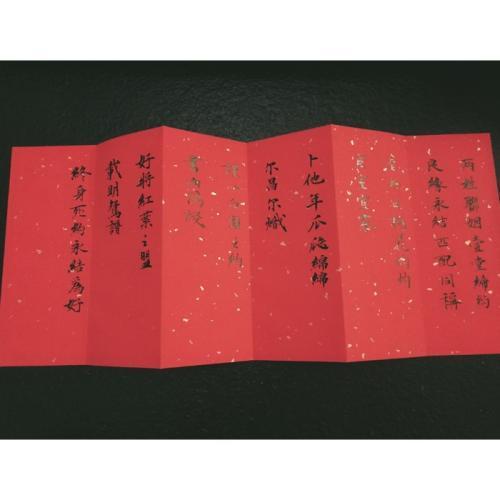 两姓聯姻壹堂締约
良缘永结匹配同稱
看此日桃花灼灼
宜室宜家
卜他年瓜瓞綿綿
尔昌尔熾
謹以白頭之約
書向鴻箋
好將紅葉之盟
載明鴛譜
終身死约永結為好